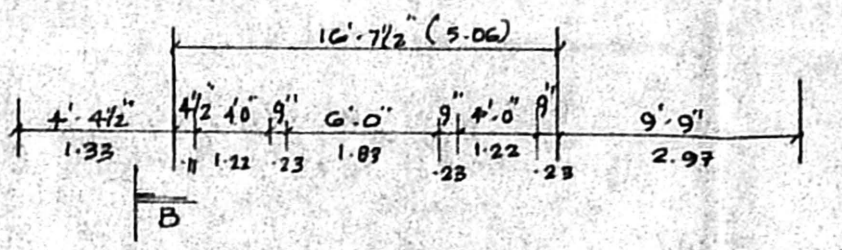 16'-7½" (5.06)
4'-4½" 4½" 4'0" 9" 6'-0" 9" 4'-0" 9" 9'-9"
1.33 .11 1.22 .23 1.83 .23 1.22 .23 2.97
B